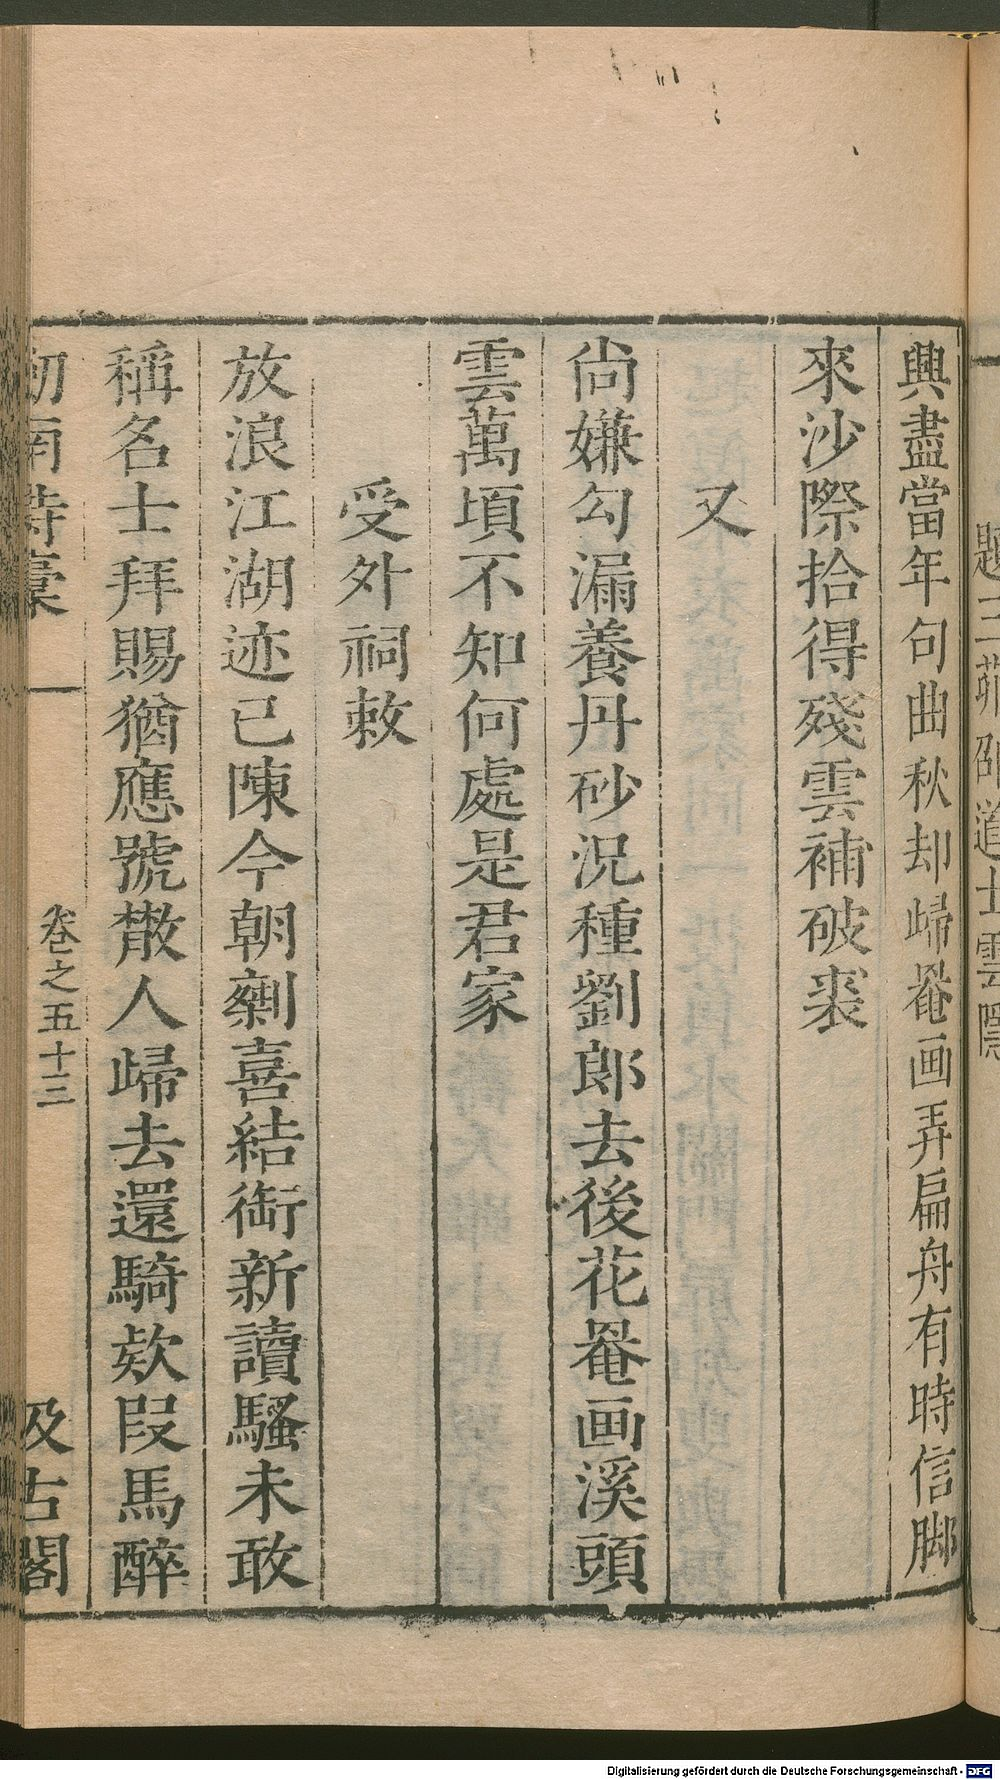 題三茆邵道士雲隱
興盡當年句曲秋却歸罨画弄扁舟有時信脚
來沙際拾得殘雲補破裘
又
尚嫌勾漏養丹砂況種劉郎去後花罨画溪頭
雲萬頃不知何處是君家
受外祠敕
放浪江湖迹已陳今朝剩喜結銜新讀騷未敢
稱名士拜賜猶應號散人歸去還騎欵段馬醉
劒南詩稾
卷之五十三
汲古閣
Digitalisierung gefördert durch die Deutsche Forschungsgemeinschaft - DFG